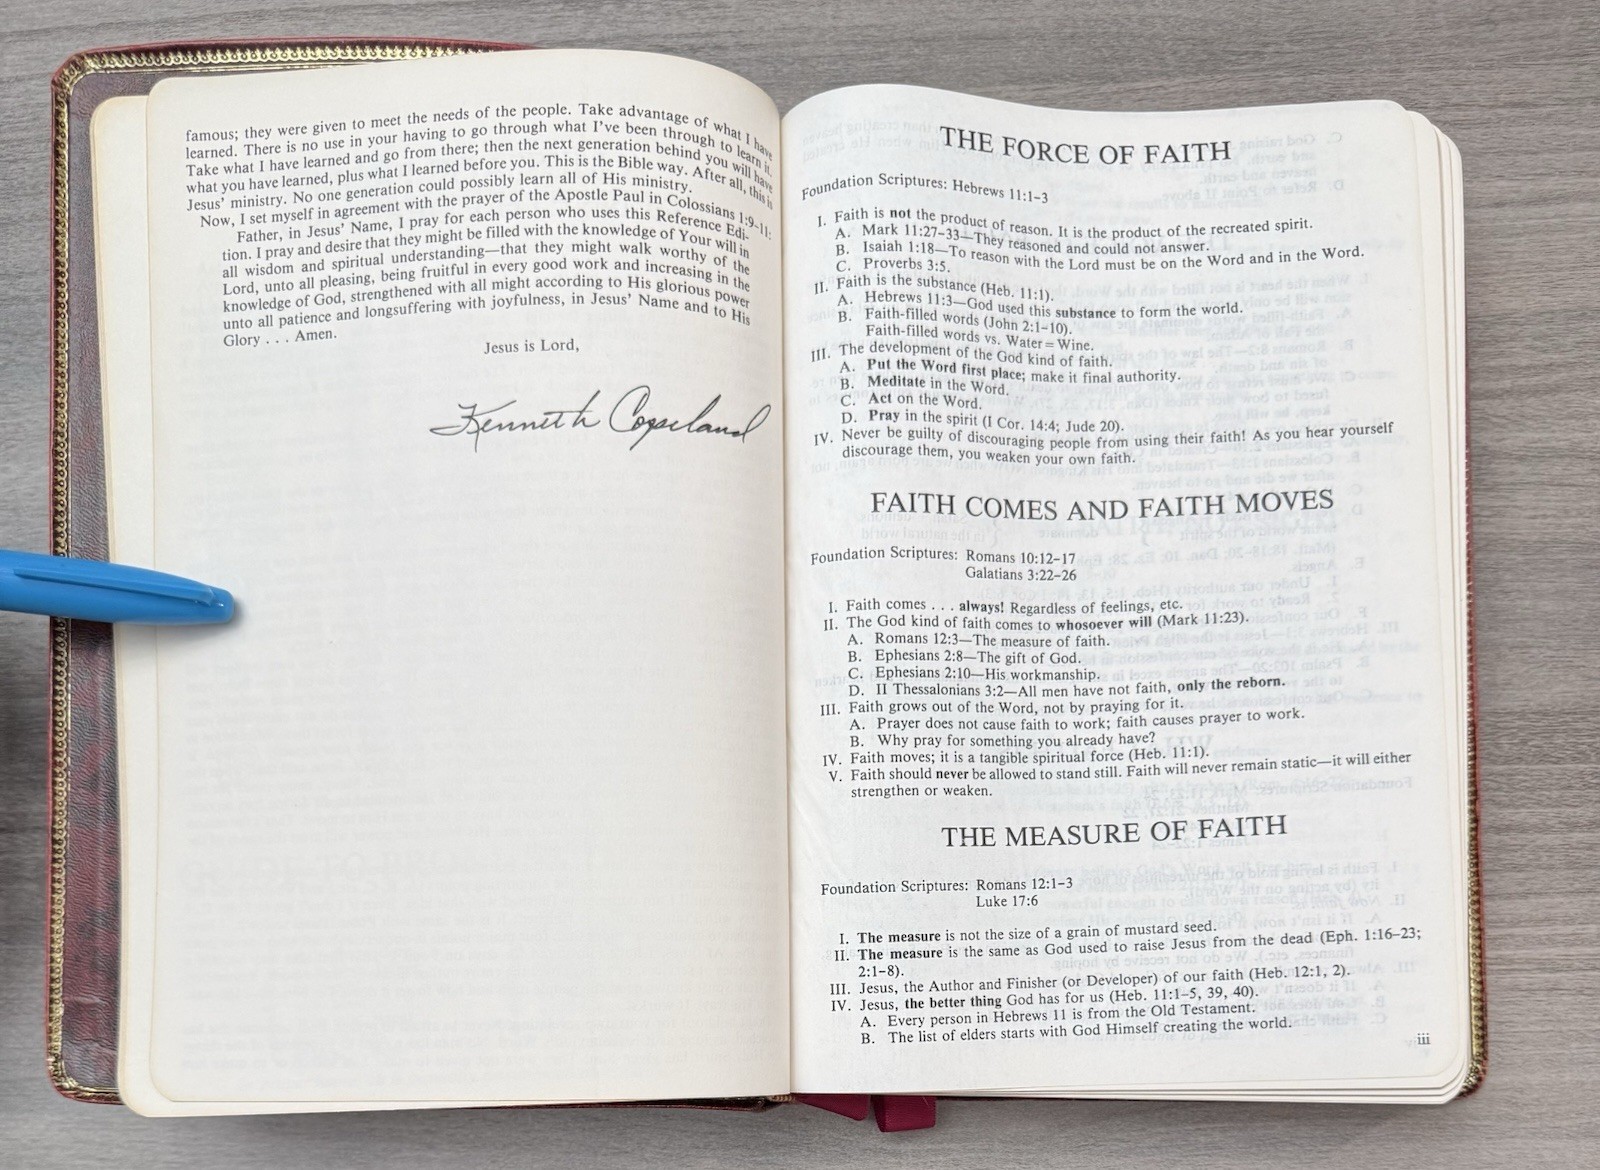 famous; they were given to meet the needs of the people. Take advantage of what I have
learned. There is no use in your having to go through what I've been through to learn it.
Take what I have learned and go from there; then the next generation behind you will have
what you have learned, plus what I learned before you. This is the Bible way. After all, this is
Jesus' ministry. No one generation could possibly learn all of His ministry.
Now, I set myself in agreement with the prayer of the Apostle Paul in Colossians 1:9-11:
Father, in Jesus' Name, I pray for each person who uses this Reference Edi-
tion. I pray and desire that they might be filled with the knowledge of Your will in
all wisdom and spiritual understanding—that they might walk worthy of the
Lord, unto all pleasing, being fruitful in every good work and increasing in the
knowledge of God, strengthened with all might according to His glorious power
unto all patience and longsuffering with joyfulness, in Jesus' Name and to His
Glory . . . Amen.
Jesus is Lord,
Kenneth Copeland
THE FORCE OF FAITH
Foundation Scriptures: Hebrews 11:1-3
I. Faith is not the product of reason. It is the product of the recreated spirit.
A. Mark 11:27-33—They reasoned and could not answer.
B. Isaiah 1:18—To reason with the Lord must be on the Word and in the Word.
C. Proverbs 3:5.
II. Faith is the substance (Heb. 11:1).
A. Hebrews 11:3—God used this substance to form the world.
B. Faith-filled words (John 2:1-10).
Faith-filled words vs. Water = Wine.
III. The development of the God kind of faith.
A. Put the Word first place; make it final authority.
B. Meditate in the Word.
C. Act on the Word.
D. Pray in the spirit (I Cor. 14:4; Jude 20).
IV. Never be guilty of discouraging people from using their faith! As you hear yourself
discourage them, you weaken your own faith.
FAITH COMES AND FAITH MOVES
Foundation Scriptures: Romans 10:12-17
Galatians 3:22-26
I. Faith comes . . . always! Regardless of feelings, etc.
II. The God kind of faith comes to whosoever will (Mark 11:23).
A. Romans 12:3—The measure of faith.
B. Ephesians 2:8—The gift of God.
C. Ephesians 2:10—His workmanship.
D. II Thessalonians 3:2—All men have not faith, only the reborn.
III. Faith grows out of the Word, not by praying for it.
A. Prayer does not cause faith to work; faith causes prayer to work.
B. Why pray for something you already have?
IV. Faith moves; it is a tangible spiritual force (Heb. 11:1).
V. Faith should never be allowed to stand still. Faith will never remain static—it will either
strengthen or weaken.
THE MEASURE OF FAITH
Foundation Scriptures: Romans 12:1-3
Luke 17:6
I. The measure is not the size of a grain of mustard seed.
II. The measure is the same as God used to raise Jesus from the dead (Eph. 1:16-23;
2:1-8).
III. Jesus, the Author and Finisher (or Developer) of our faith (Heb. 12:1, 2).
IV. Jesus, the better thing God has for us (Heb. 11:1-5, 39, 40).
A. Every person in Hebrews 11 is from the Old Testament.
B. The list of elders starts with God Himself creating the world.
iii